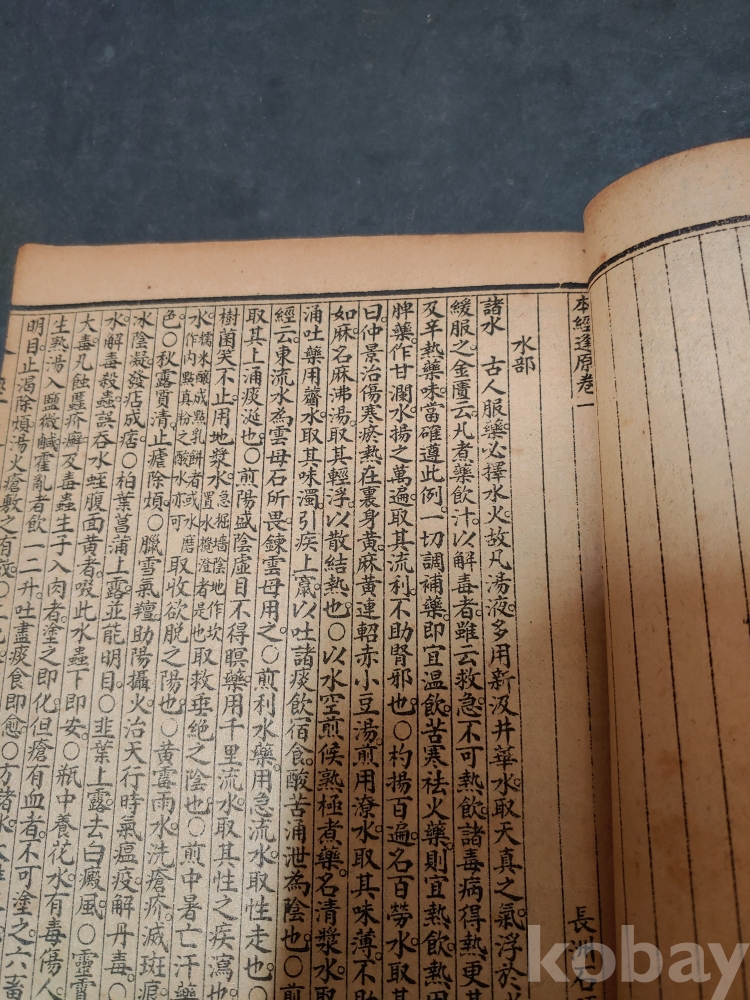 本經逢原卷一
長洲石
水部
諸水　古人服藥必擇水火故凡湯液多用新汲井華水取天真之氣浮於
緩服之金匱云凡煮藥飲汁以解毒者雖云救急不可熱飲諸毒病得熱更甚
及辛熱藥味當確遵此例一切調補藥即宜溫飲苦寒祛火藥則宜熱飲
脾藥作甘瀾水揚之萬遍取其流利不助腎邪也〇杓揚百遍名百勞水取其
曰仲景治傷寒瘀熱在裏身黃麻黃連軺赤小豆湯煎用潦水取其味薄不助
如麻名麻沸湯取其輕浮以散結熱也〇以水空煎候熟極煮藥名清漿水取
涌吐藥用虀水取其味濁引疾上竄以吐諸痰飲宿食酸苦涌泄為陰也〇煎
取其上涌痰涎也〇煎陽盛陰虛目不得瞑藥用千里流水取其性之疾瀉也
經云東流水為雲母石所畏鍊雲母用之〇煎利水藥用急流水取性走也〇
樹菌笑不止用地漿水急掘墻陰地作坎置水攪澄者是也取救垂絕之陰也〇煎中暑亡汗藥
水糯米釀成點乳餅者或水磨作內點真粉之酸水亦可取收欲脫之陽也〇黃霉雨水洗瘡疥滅斑痕
色〇秋露質清止瘧除煩〇臘雪氣羶助陽攝火治天行時氣瘟疫解丹毒〇
冰陰凝發痁成痞〇柏葉菖蒲上露並能明目〇韭葉上露去白癜風〇靈霤
水解毒殺蟲誤吞水蛭腹面黃者啜此水蟲下即安〇瓶中養花水有毒傷人
大毒凡蝕䘌疥癬及毒蟲生子入肉者塗之即化但瘡有血者不可塗之六畜
生熟湯入鹽微鹹霍亂者飲一二升吐盡痰食即愈〇方諸水
明目止渴除煩湯火瘡敷之有效〇